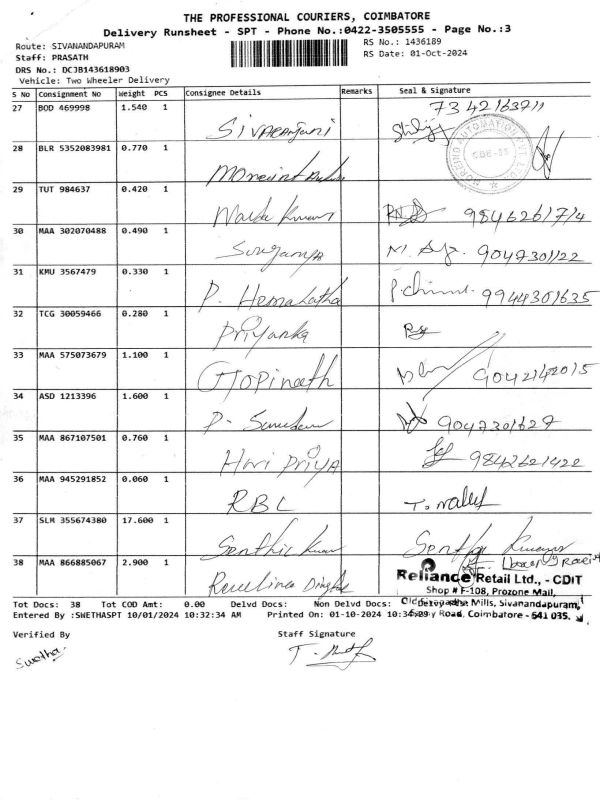 THE PROFESSIONAL COURIERS, COIMBATORE
Delivery Runsheet - SPT - Phone No.:0422-3505555 - Page No.:3
Route: SIVANANDAPURAM
RS No.: 1436189
Staff: PRASATH
RS Date: 01-Oct-2024
DRS No.: DCJB143618903
Vehicle: Two Wheeler Delivery
S No Consignment No Weight PCS Consignee Details Remarks Seal & Signature
27 BOD 469998 1.540 1 Sivaranjani 7342163711
28 BLR 5352083981 0.770 1
29 TUT 984637 0.420 1 Kumar 9846261714
30 MAA 302070488 0.490 1 9047301122
31 KMU 3567479 0.330 1 P. Hemalatha 9944301635
32 TCG 30059466 0.280 1 Priyanka
33 MAA 575073679 1.100 1 Gopineeth 9042142015
34 ASD 1213396 1.600 1 9047301627
35 MAA 867107501 0.760 1 Hari Priya 9842621422
36 MAA 945291852 0.060 1 RBL
37 SLM 355674380 17.600 1 Senthil Kumar
38 MAA 866885067 2.900 1
Reliance Retail Ltd., - CDIT
Shop # F-108, Prozone Mall,
Mills, Sivanandapuram,
Road, Coimbatore - 641 035.
Tot Docs: 38 Tot COD Amt: 0.00 Delvd Docs: Non Delvd Docs:
Entered By :SWETHASPT 10/01/2024 10:32:34 AM Printed On: 01-10-2024 10:34:29
Verified By Staff Signature
Swetha